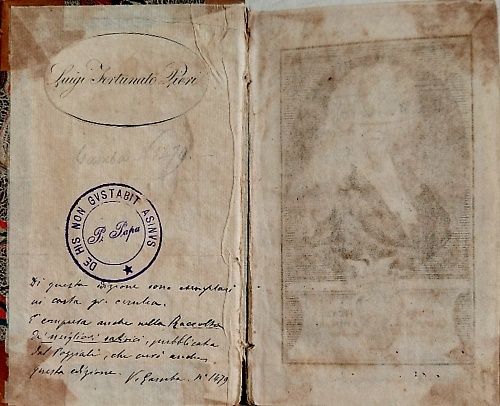 Luigi Fortunato Pieri
Gamba N 1279
DE HIS NON GVSTABIT ASINVS
P. Papa
Di questa edizione sono esemplari
in carta gr. cerulea.
È compresa anche nella Raccolta
de' migliori satirici, pubblicata
dal Poggiali, che curò anche
questa edizione. V. Gamba. N° 1479